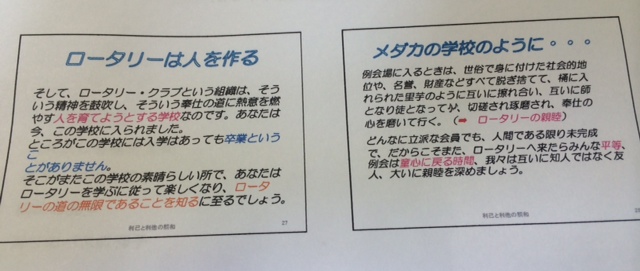 ロータリーは人を作る
そして、ロータリー・クラブという組織は、そう
いう精神を鼓吹し、そういう奉仕の道に熱意を燃
やす人を育てようとする学校なのです。あなたは
今、この学校に入られました。
ところがこの学校には入学はあっても卒業というこ
とがありません。
そこがまたこの学校の素晴らしい所で、あなたは
ロータリーを学ぶに従って楽しくなり、ロータ
リーの道の無限であることを知るに至るでしょう。
利己と利他の調和
27
メダカの学校のように・・・
例会場に入るときは、世俗で身に付けた社会的地
位や、名誉、財産などすべて脱ぎ捨てて、桶に入
れられた里芋のように互いに擦れ合い、互いに師
となり徒となってが、切磋され琢磨され、奉仕の
心を磨いて行く。(➡ ロータリーの親睦)
どんなに立派な会員でも、人間である限り未完成
で、だからこそまた、ロータリーへ来たらみんな平等、
例会は童心に戻る時間、我々は互いに知人ではなく友
人、大いに親睦を深めましょう。
利己と利他の調和